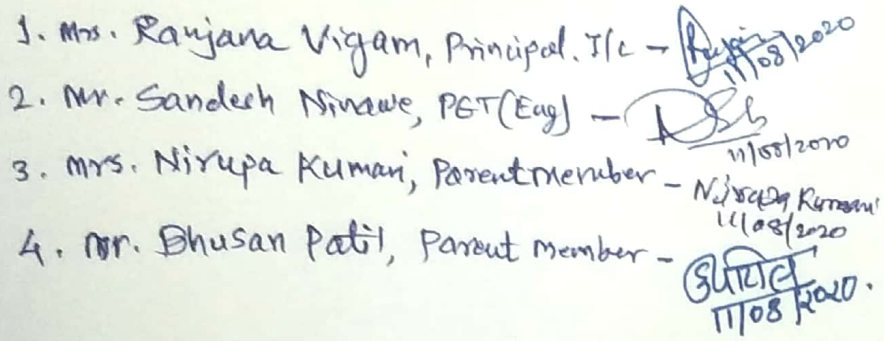 1. Mrs. Ranjana Vigam, Principal. I/c -
11/08/2020
2. Mr. Sandesh Ninawe, PGT(Eng) -
11/08/2020
3. Mrs. Nirupa Kumari, Parent member - Nirupa Kumari
11/08/2020
4. Mr. Bhusan Patil, Parent member -
11/08/2020.